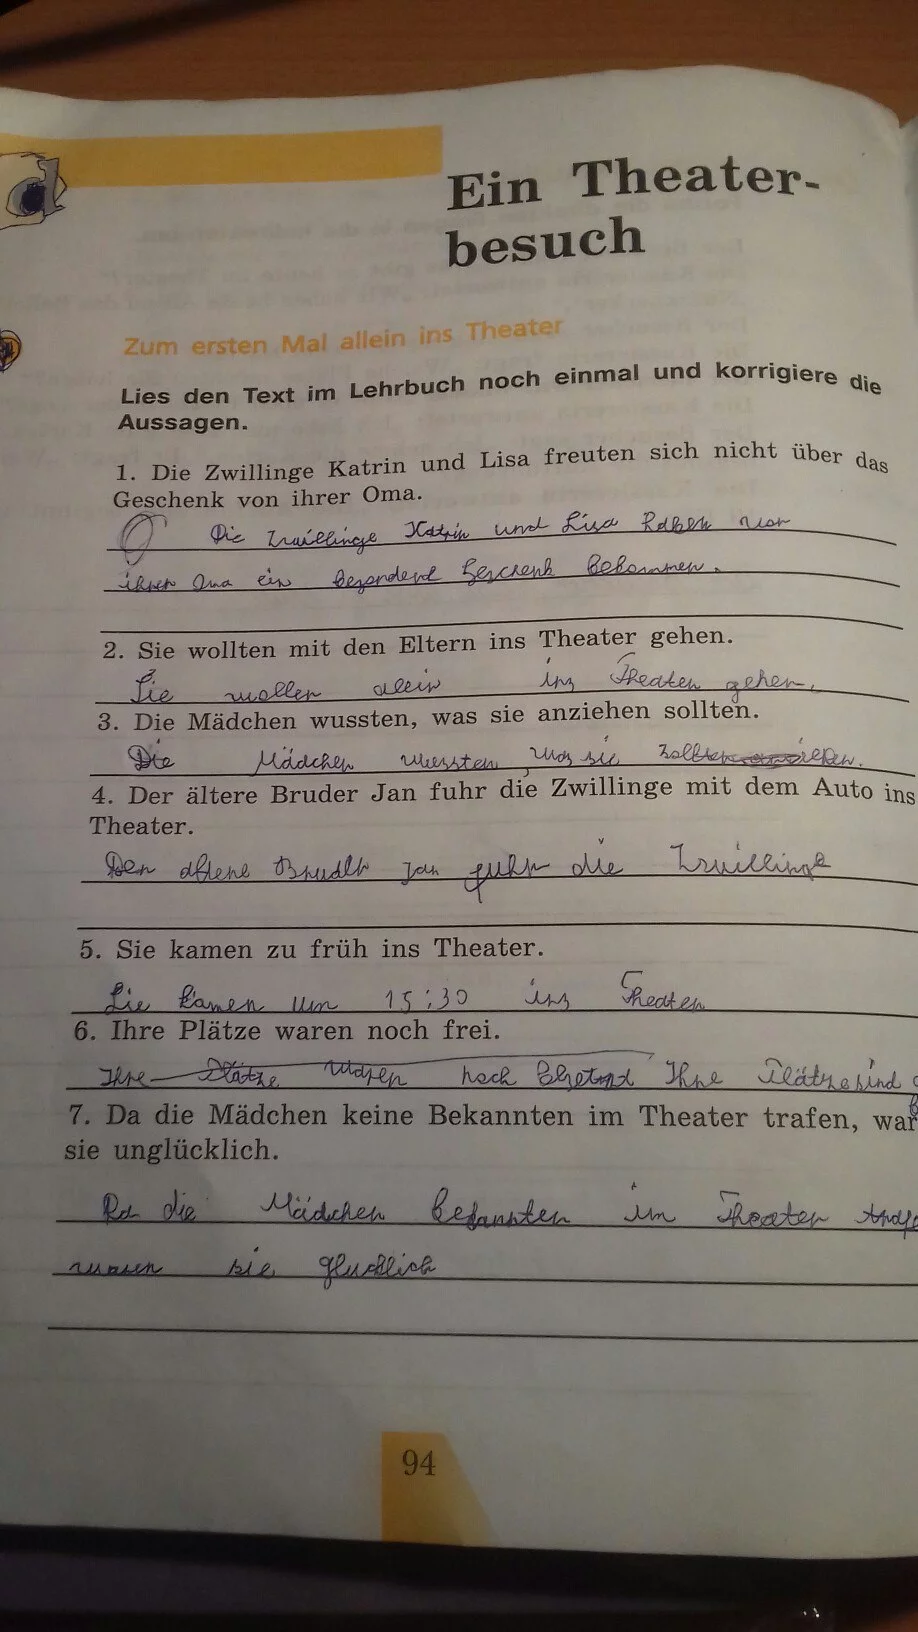 d
Ein Theater-
besuch
Zum ersten Mal allein ins Theater
Lies den Text im Lehrbuch noch einmal und korrigiere die
Aussagen.
1. Die Zwillinge Katrin und Lisa freuten sich nicht über das
Geschenk von ihrer Oma.
Die Zwillinge Katrin und Lisa haben von
ihrer Oma ein Geschenk bekommen.
2. Sie wollten mit den Eltern ins Theater gehen.
Sie wollen allein ins Theater gehen.
3. Die Mädchen wussten, was sie anziehen sollten.
Die Mädchen wussten, was sie sollten
4. Der ältere Bruder Jan fuhr die Zwillinge mit dem Auto ins
Theater.
Der Jan fuhr die Zwillinge
5. Sie kamen zu früh ins Theater.
Sie kamen um 15:30 ins Theater
6. Ihre Plätze waren noch frei.
Ihre Plätze waren noch Ihre Plätze sind
7. Da die Mädchen keine Bekannten im Theater trafen, war
sie unglücklich.
Da die Mädchen Bekannten im Theater
waren sie glucklich
94